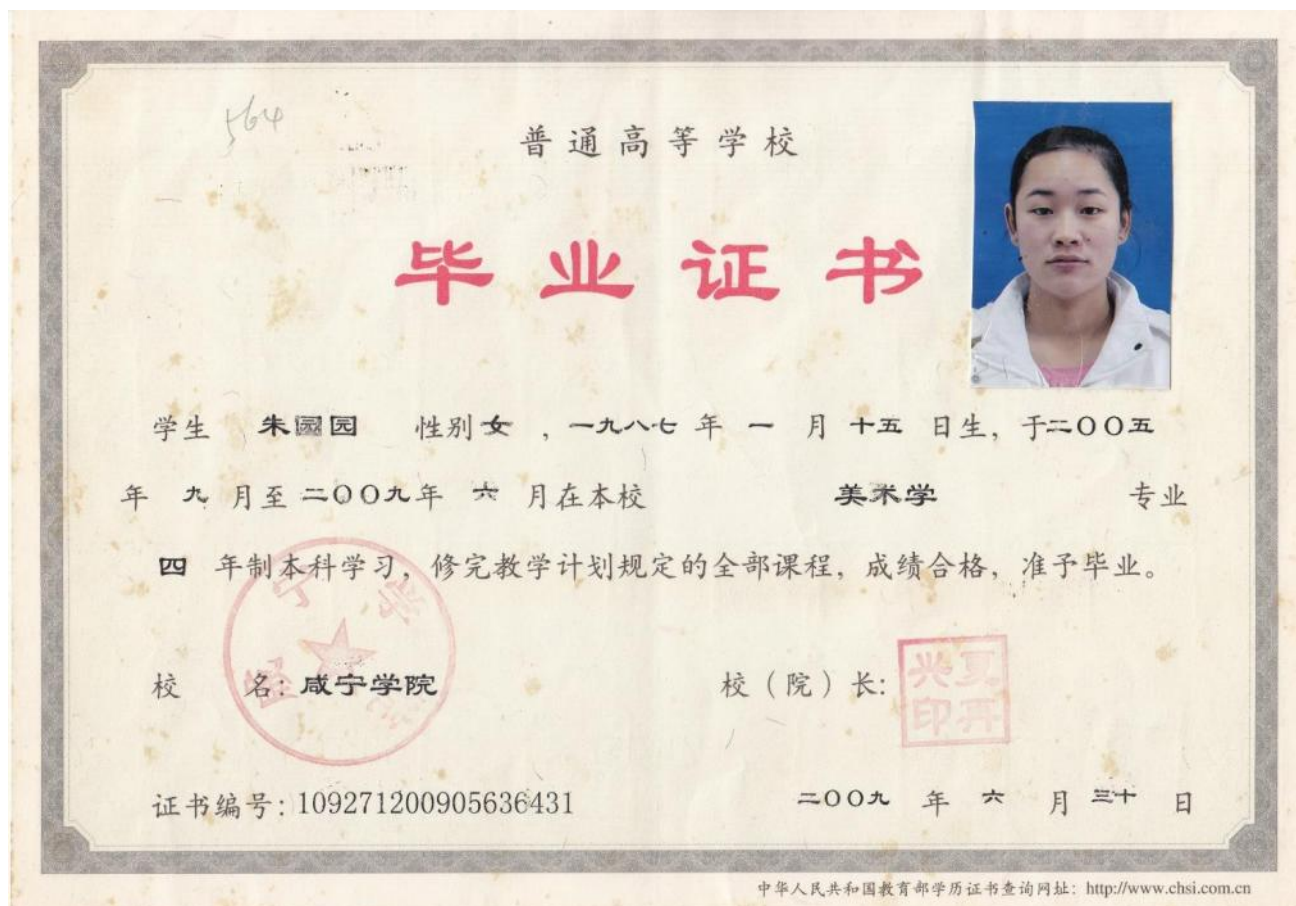 564
普通高等学校
毕业证书
学生 朱园园 性别 女 , 一九八七 年 一 月 十五 日生, 于二〇〇五
年 九 月至 二〇〇九 年 六 月在本校 美术学 专业
四 年制本科学习, 修完教学计划规定的全部课程, 成绩合格, 准予毕业。
校 名: 咸宁学院 校(院)长:
证书编号: 109271200905636431 二〇〇九 年 六 月 三十 日
中华人民共和国教育部学历证书查询网址: http://www.chsi.com.cn